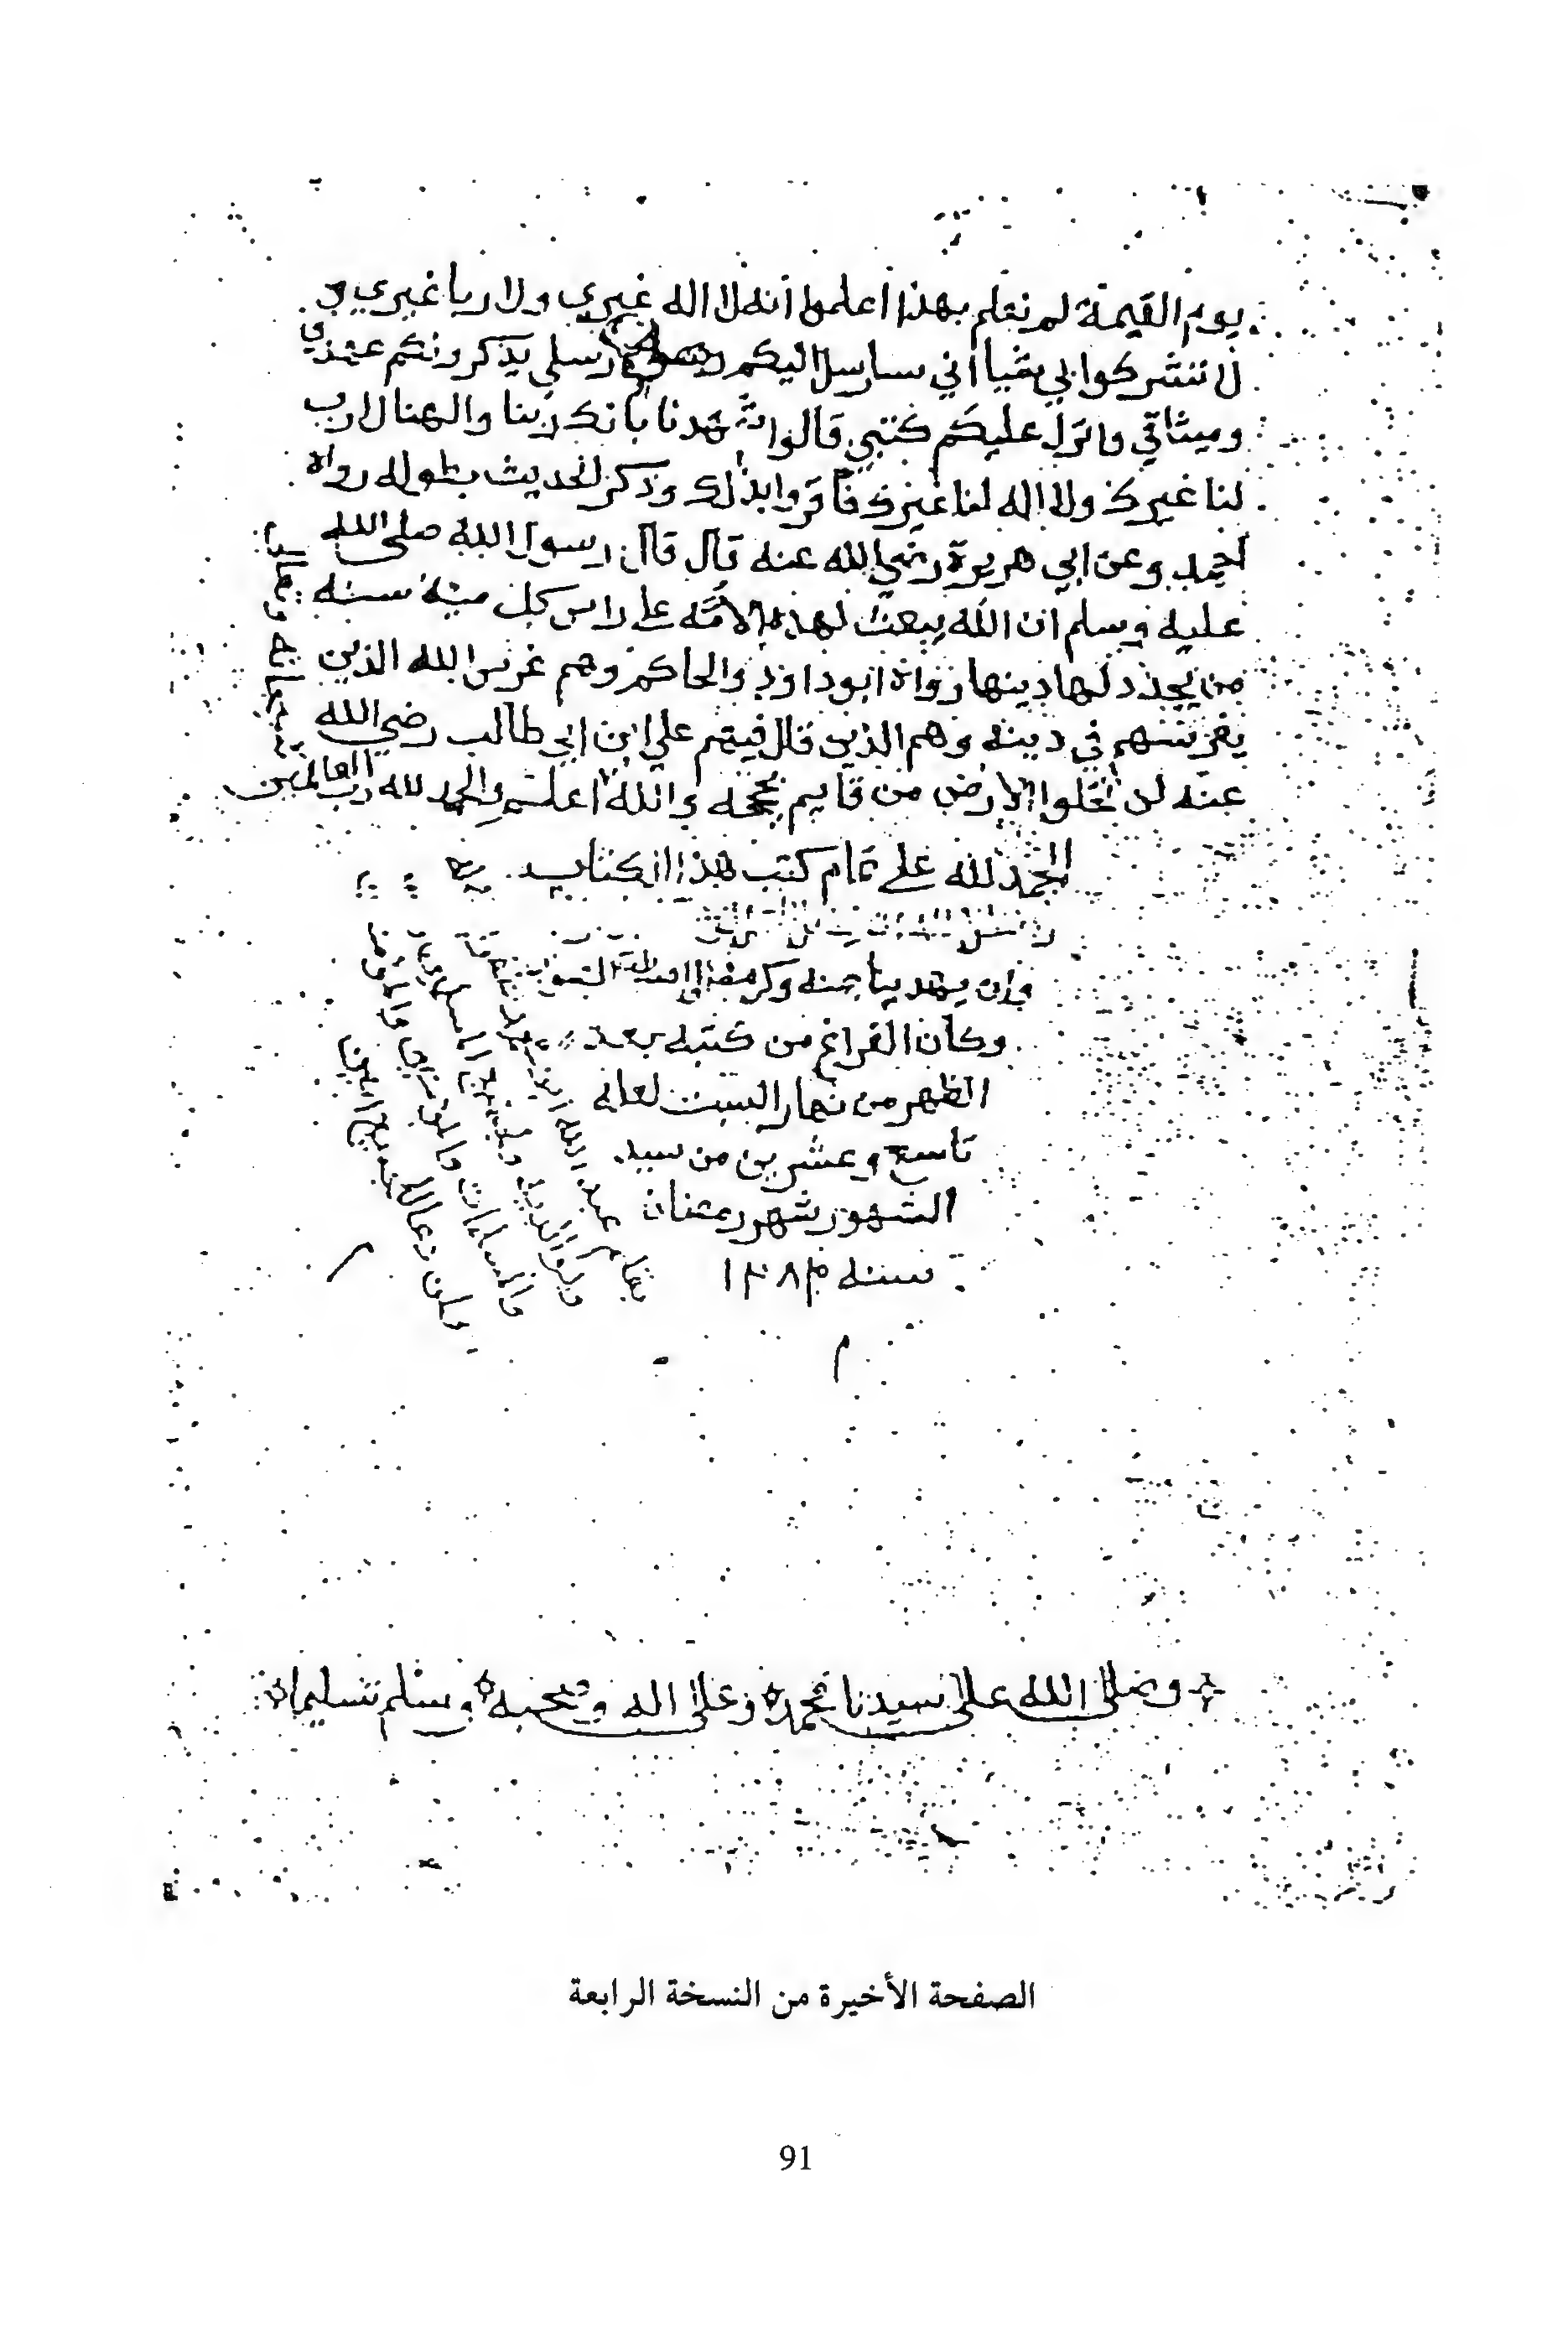 يوم القيمة لم نعلم بهذا اعلموا انه لا اله غيري ولا ربا غيري و
لا تشركوا بي شيا اني سارسل اليكم رسلي يذكرونكم عهدي
وميثاقي وانزل عليكم كتبي قالوا شهدنا بانك ربنا والهنا لا رب
لنا غيرك ولا اله لنا غيرك فاقروا بذلك وذكر الحديث بطوله رواه
احمد وعن ابي هريرة رضي الله عنه قال قال رسول الله صلى الله
عليه وسلم ان الله يبعث لهذه الامة على راس كل مية سنه
من يجدد لها دينها رواه ابوداود والحاكم وهم غرس الله الذين
يغرسهم في دينه وهم الذين قال فيهم علي ابن ابي طالب رضي الله
عنه لن تخلوا الارض من قايم بحجه والله اعلم والحمد لله رب العالمين
الحمد لله على تمام كتب هذا الكتاب
وان يهدينا بمنه وكرمه
وكان الفراغ من كتبه بعد
الظهر من نهار السبت لعله
تاسع وعشرين من سيد
الشهور شهر رمضان
سنه ١٣٨٣
م
بقلم عبد الله
ولوالديه
والمسلمات
ولمن دعا لك
وصلى الله على سيدنا محمد وعلى اله وصحبه وسلم تسليما
الصفحة الأخيرة من النسخة الرابعة
91